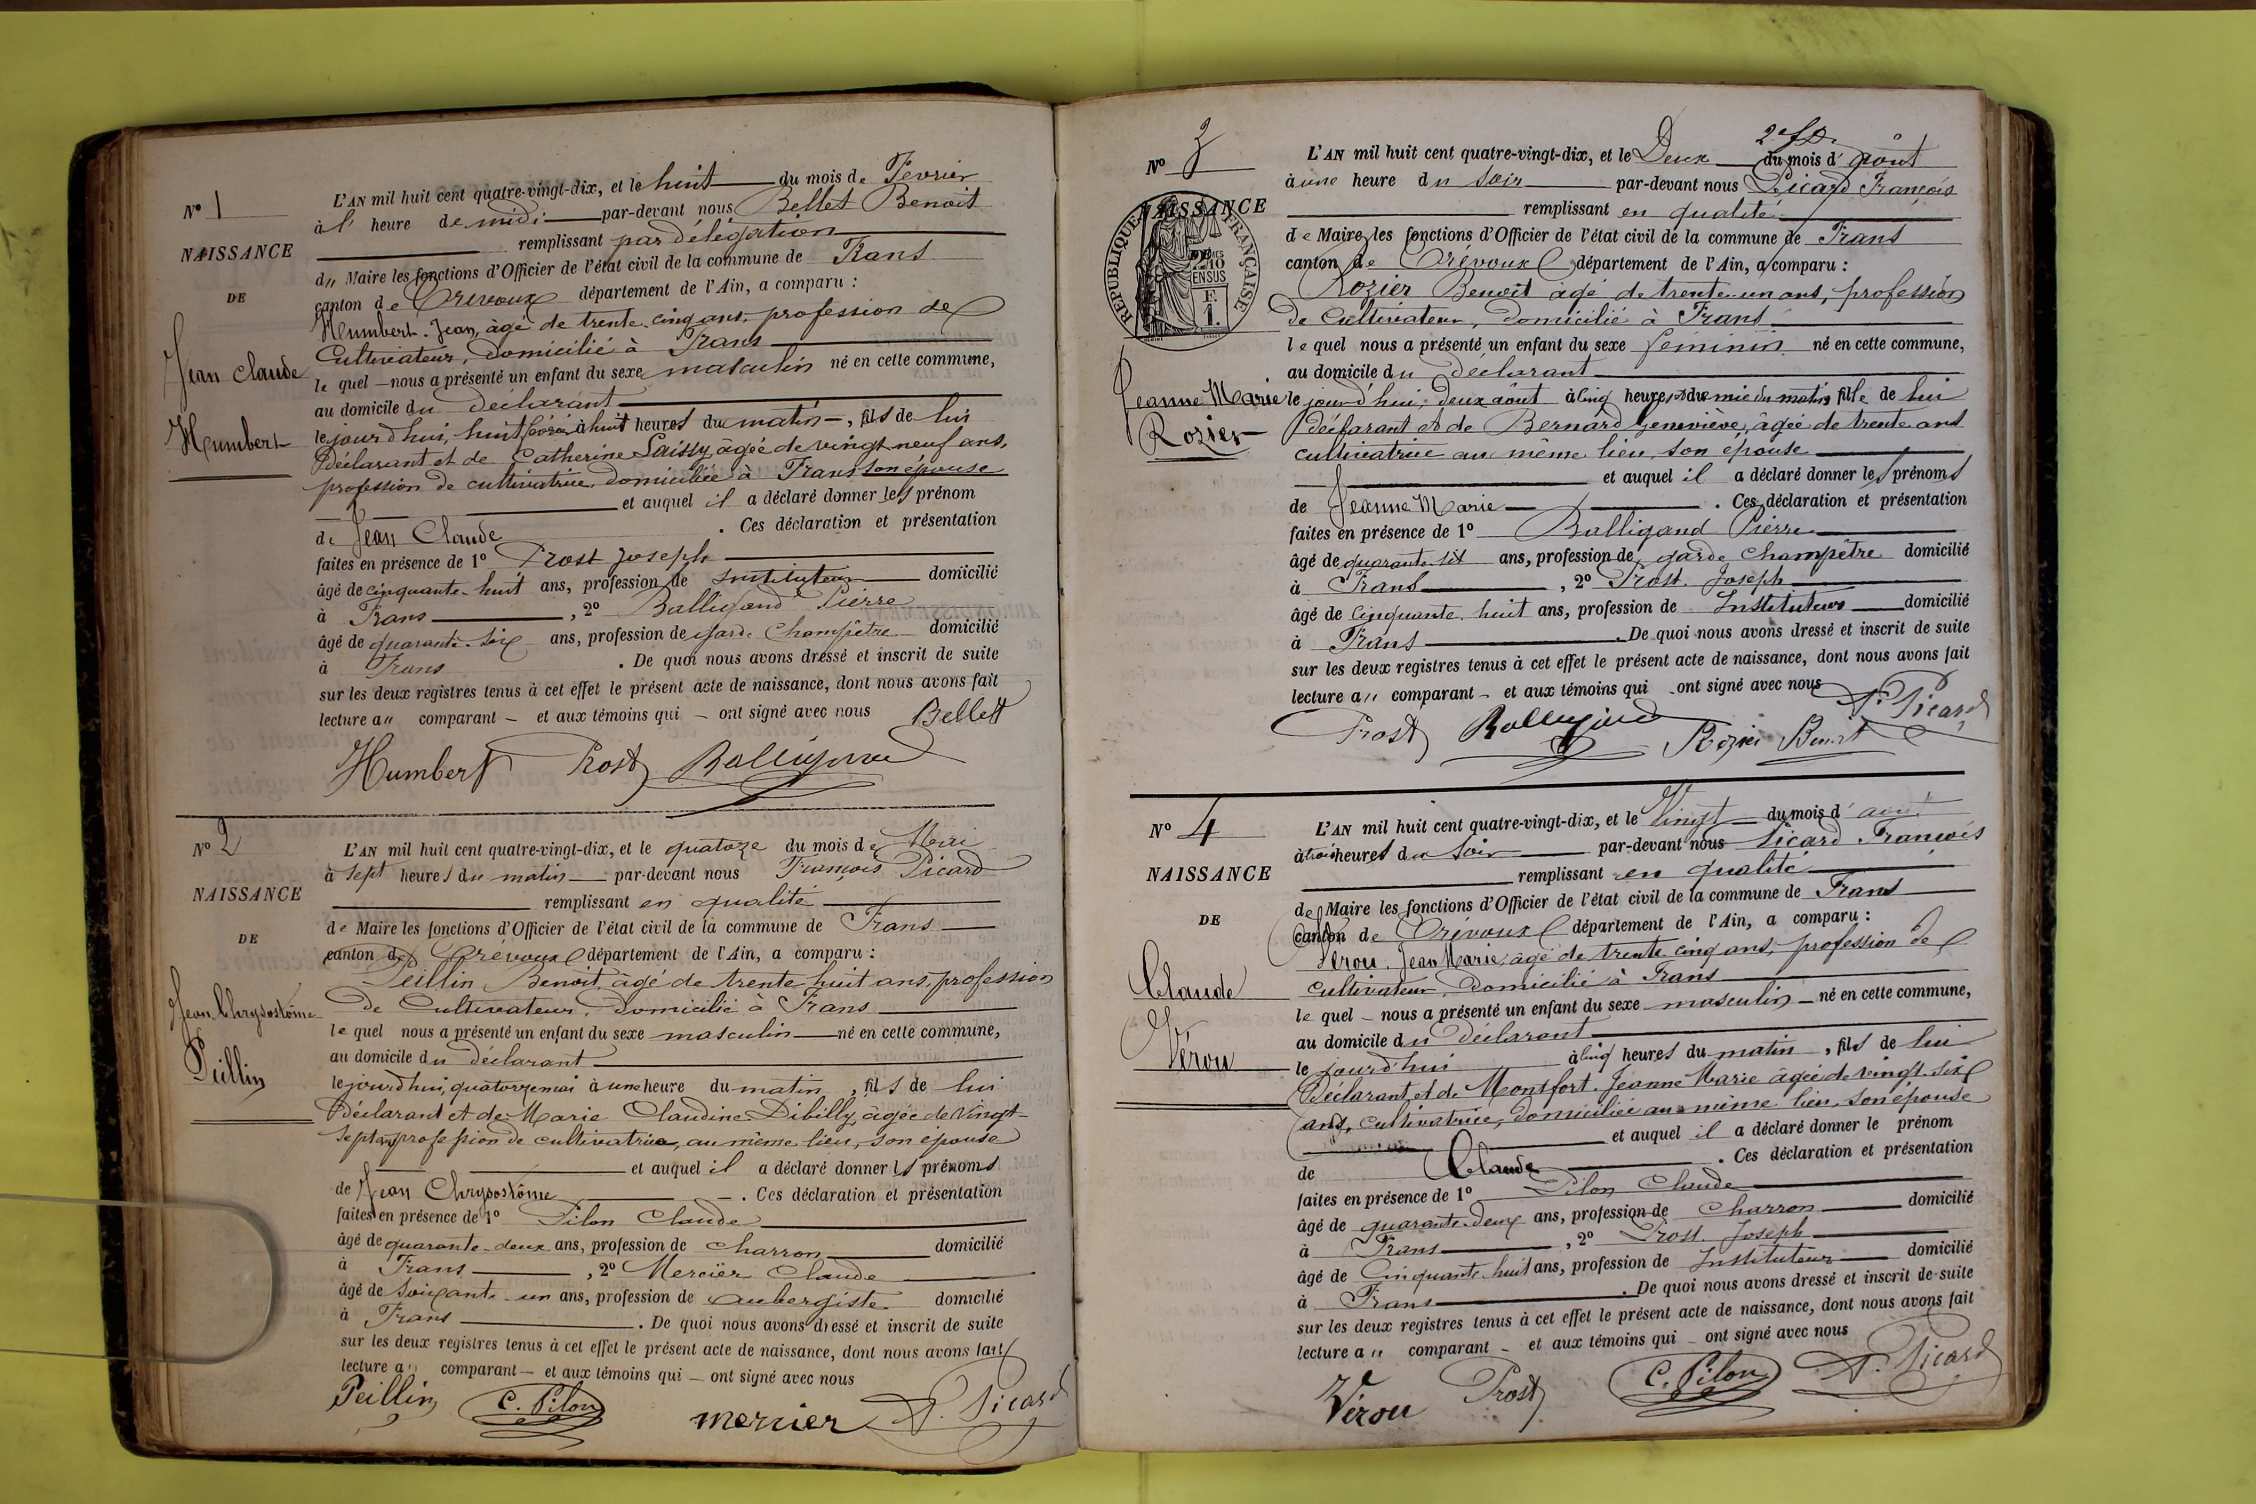 N° 1
NAISSANCE
DE
Jean Claude
Humbert
L'AN mil huit cent quatre-vingt-dix, et le huit du mois de Février
à l' heure de midi par-devant nous Bellet Benoit
remplissant par délégation
du Maire les fonctions d'Officier de l'état civil de la commune de Frans
canton de Trévoux département de l'Ain, a comparu :
Humbert Jean, âgé de trente cinq ans, profession de
Cultivateur, domicilié à Frans
le quel nous a présenté un enfant du sexe masculin né en cette commune,
au domicile du déclarant
le jourd'hui, huit février à huit heures du matin, fils de lui
Déclarant et de Catherine Saissy, âgée de vingt-neuf ans,
profession de cultivatrice, domiciliée à Frans son épouse
et auquel il a déclaré donner les prénom
de Jean Claude . Ces déclaration et présentation
faites en présence de 1° Prost Joseph
âgé de cinquante-huit ans, profession de Instituteur domicilié
à Frans , 2° Balligand Pierre
âgé de quarante-six ans, profession de garde Champêtre domicilié
à Frans . De quoi nous avons dressé et inscrit de suite
sur les deux registres tenus à cet effet le présent acte de naissance, dont nous avons fait
lecture au comparant et aux témoins qui ont signé avec nous Bellet
Humbert Prost Balligand
N° 2
NAISSANCE
DE
Jean Chrysostôme
Peillin
L'AN mil huit cent quatre-vingt-dix, et le quatorze du mois de Mai
à sept heures du matin par-devant nous François Picard
remplissant en qualité
de Maire les fonctions d'Officier de l'état civil de la commune de Frans
canton de Trévoux département de l'Ain, a comparu :
Peillin Benoit, âgé de trente huit ans, profession
de Cultivateur, domicilié à Frans
le quel nous a présenté un enfant du sexe masculin né en cette commune,
au domicile du déclarant
le jourd'hui, quatorze mai à une heure du matin, fils de lui
Déclarant et de Marie Claudine Dibilly, âgée de vingt-
sept ans, profession de cultivatrice, au même lieu, son épouse
et auquel il a déclaré donner les prénoms
de Jean Chrysostôme . Ces déclaration et présentation
faites en présence de 1° Pilon Claude
âgé de quarante-deux ans, profession de charron domicilié
à Frans , 2° Mercier Claude
âgé de soixante-un ans, profession de aubergiste domicilié
à Frans . De quoi nous avons dressé et inscrit de suite
sur les deux registres tenus à cet effet le présent acte de naissance, dont nous avons fait
lecture au comparant et aux témoins qui ont signé avec nous
Peillin C. Pilon mercier F. Picard
N° 3
NAISSANCE
DE
RÉPUBLIQUE FRANÇAISE
2/10 EN SUS
F.
1.
Jeanne Marie
Rozier
L'AN mil huit cent quatre-vingt-dix, et le Deux du mois d' août
à une heure du soir par-devant nous Picard François
remplissant en qualité
de Maire les fonctions d'Officier de l'état civil de la commune de Frans
canton de Trévoux département de l'Ain, a comparu :
Rozier Benoît âgé de trente-un ans, profession
de Cultivateur, domicilié à Frans
le quel nous a présenté un enfant du sexe féminin né en cette commune,
au domicile du déclarant
le jourd'hui, deux août à cinq heures et demie du matin fille de lui
déclarant et de Bernard Geneviève, âgée de trente ans
cultivatrice au même lieu, son épouse
et auquel il a déclaré donner les prénoms
de Jeanne Marie . Ces déclaration et présentation
faites en présence de 1° Balligand Pierre
âgé de quarante-six ans, profession de garde Champêtre domicilié
à Frans , 2° Prost Joseph
âgé de cinquante-huit ans, profession de Instituteur domicilié
à Frans . De quoi nous avons dressé et inscrit de suite
sur les deux registres tenus à cet effet le présent acte de naissance, dont nous avons fait
lecture au comparant et aux témoins qui ont signé avec nous F. Picard
Prost Balligand Rozier Benoit
N° 4
NAISSANCE
DE
Claude
Vérou
L'AN mil huit cent quatre-vingt-dix, et le Vingt du mois d' août
à trois heures du soir par-devant nous Picard François
remplissant en qualité
de Maire les fonctions d'Officier de l'état civil de la commune de Frans
canton de Trévoux département de l'Ain, a comparu :
Vérou Jean Marie, âgé de trente cinq ans, profession de
cultivateur, domicilié à Frans
le quel nous a présenté un enfant du sexe masculin né en cette commune,
au domicile du déclarant
le jourd'hui à cinq heures du matin, fils de lui
Déclarant et de Montfort Jeanne Marie âgée de vingt-six
ans, cultivatrice, domiciliée au même lieu, son épouse
et auquel il a déclaré donner le prénom
de Claude . Ces déclaration et présentation
faites en présence de 1° Pilon Claude
âgé de quarante-deux ans, profession de Charron domicilié
à Frans , 2° Prost Joseph
âgé de Cinquante-huit ans, profession de Instituteur domicilié
à Frans . De quoi nous avons dressé et inscrit de suite
sur les deux registres tenus à cet effet le présent acte de naissance, dont nous avons fait
lecture au comparant et aux témoins qui ont signé avec nous
Vérou Prost C. Pilon F. Picard